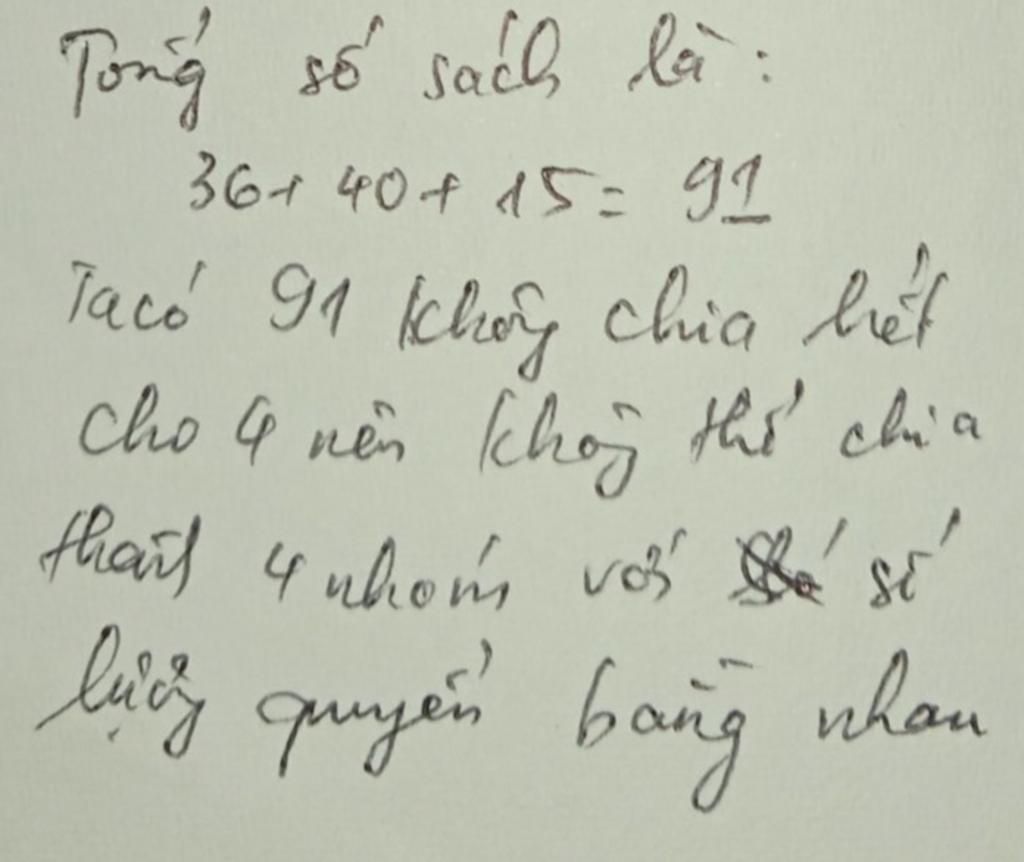 Tổng số sách là:
36+ 40+ 15= 91
Ta có 91 không chia hết
cho 4 nên không thể chia
thành 4 nhóm với số
lượng quyển bằng nhau